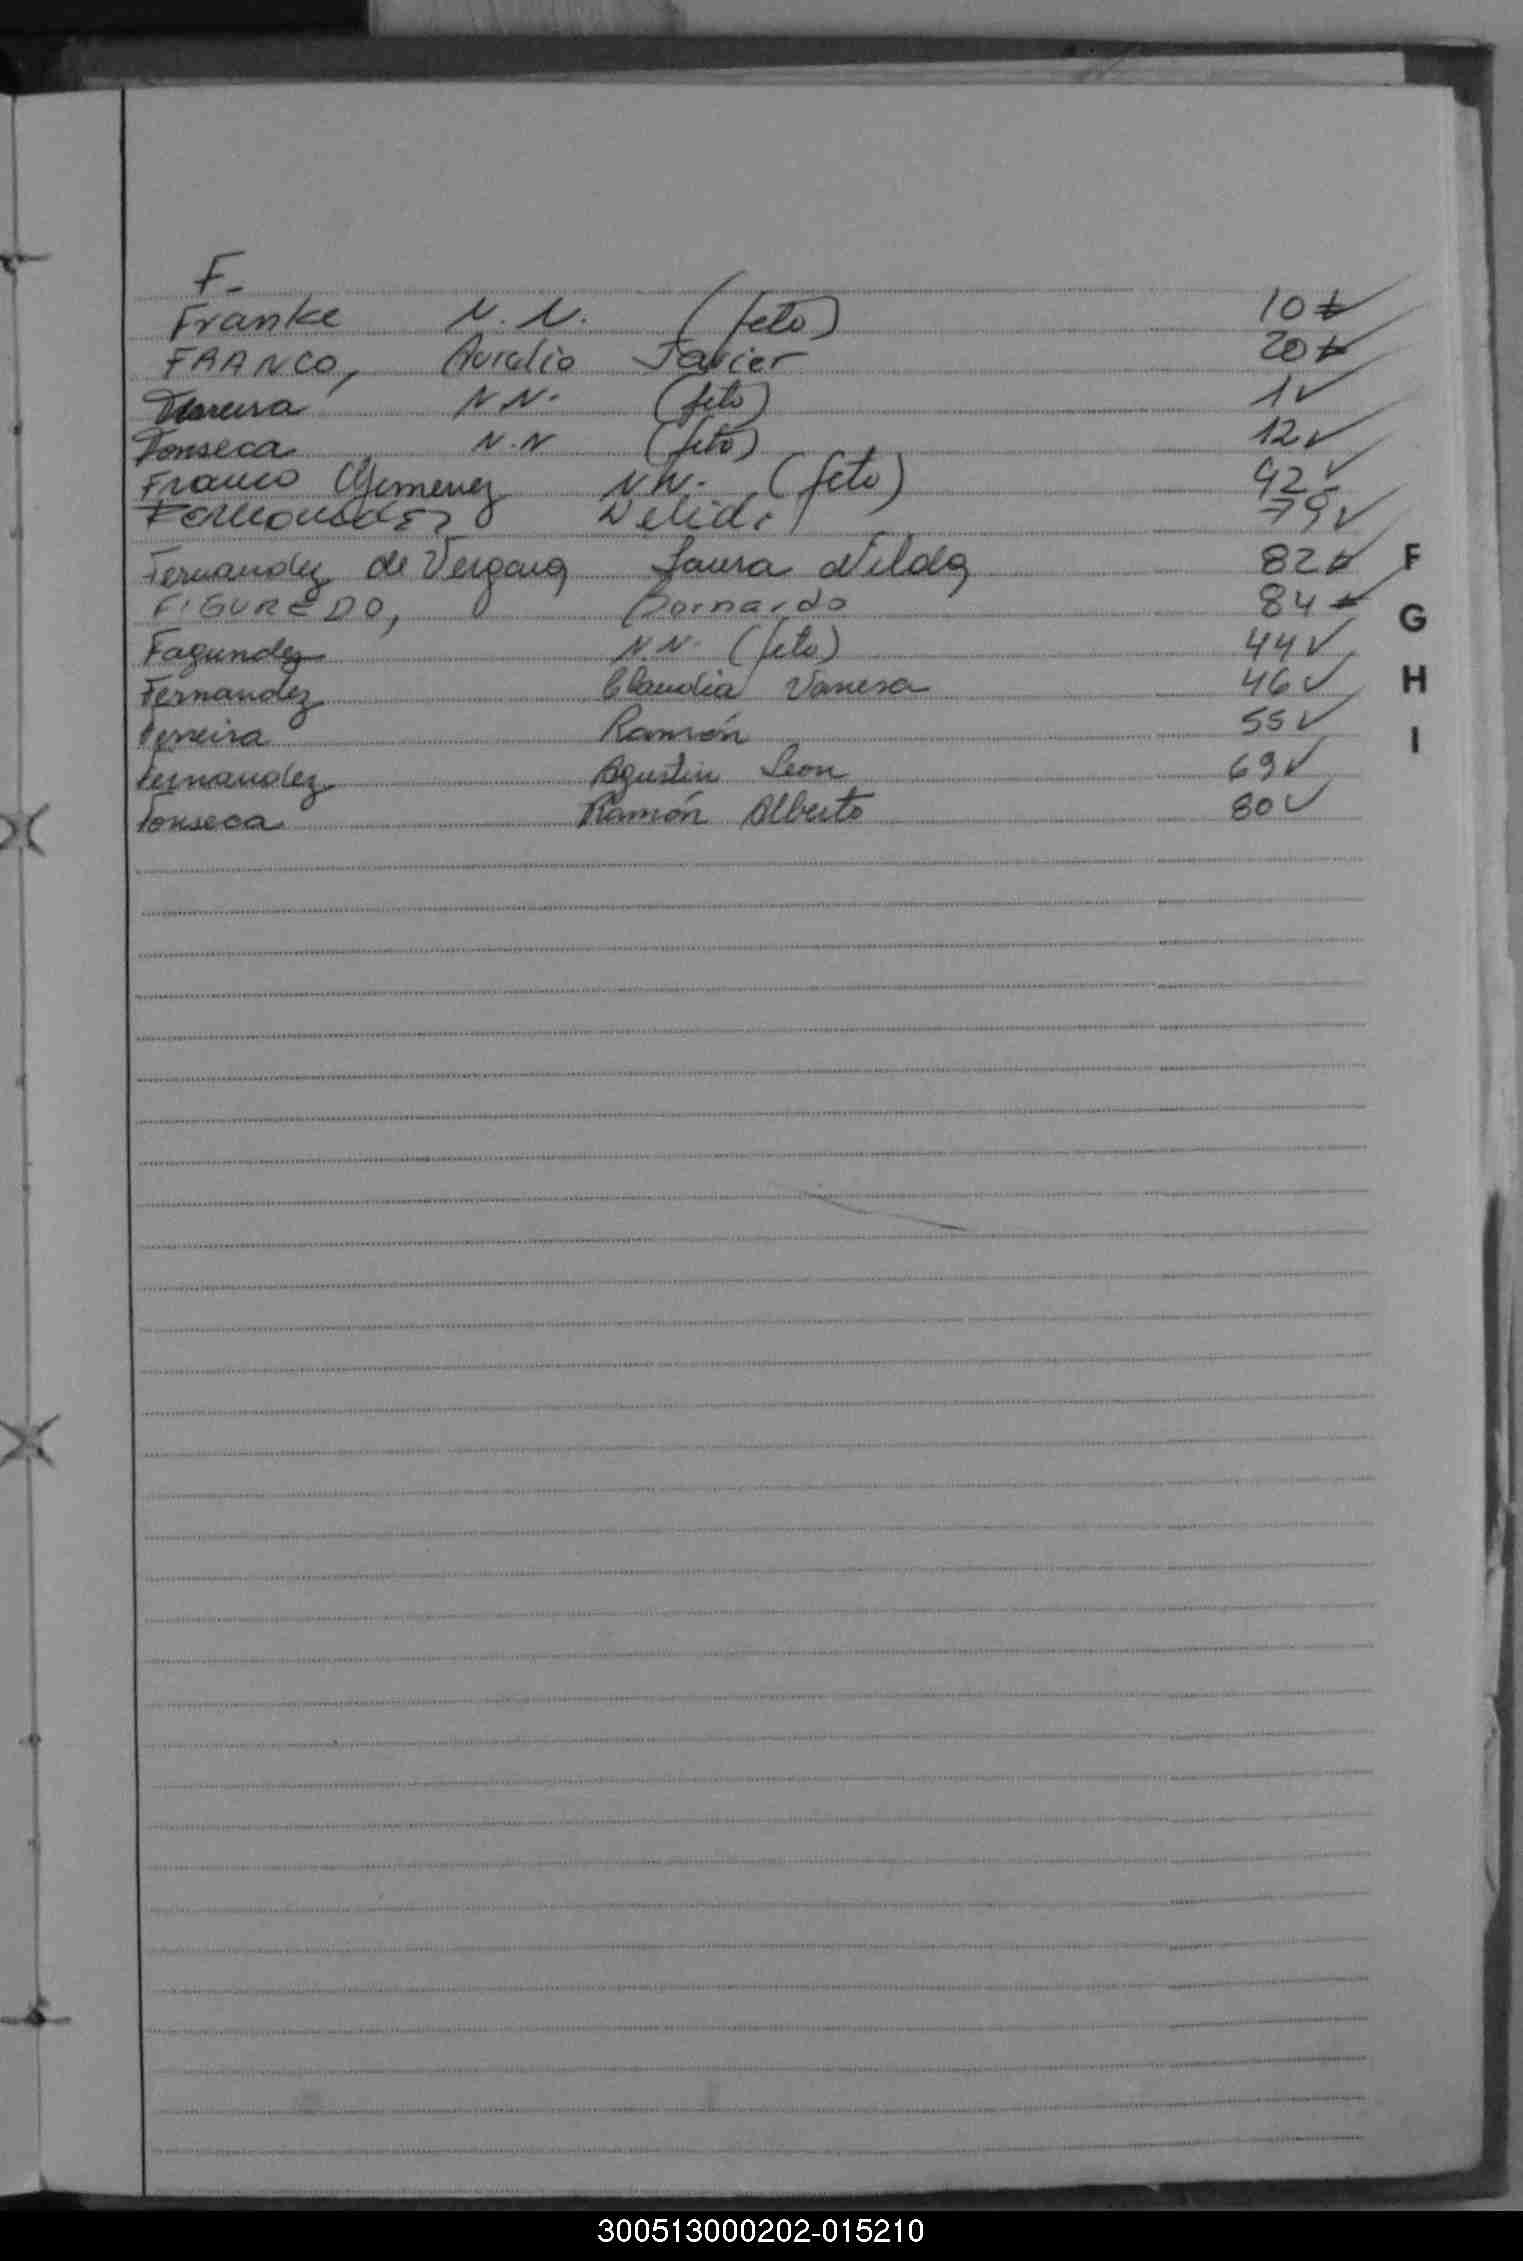 F.
Franke N.N. (feto) 10
FRANCO, Aurelio Javier 20
N.N. (feto) 1 ✓
Fonseca N.N (feto) 12 ✓
Franco Gimenez N.N. (feto) 42 ✓
Fernandez 79 ✓
Fernandez de Vergara Laura Nilda 82 F
FIGUREDO, Bernardo 84 G
Fagundez N.N. (feto) 44 ✓
Fernandez Claudia Vanesa 46 ✓ H
Ferreira Ramón 55 ✓ I
Fernandez Agustin Leon 69 ✓
Fonseca Ramón Alberto 80 ✓
300513000202-015210